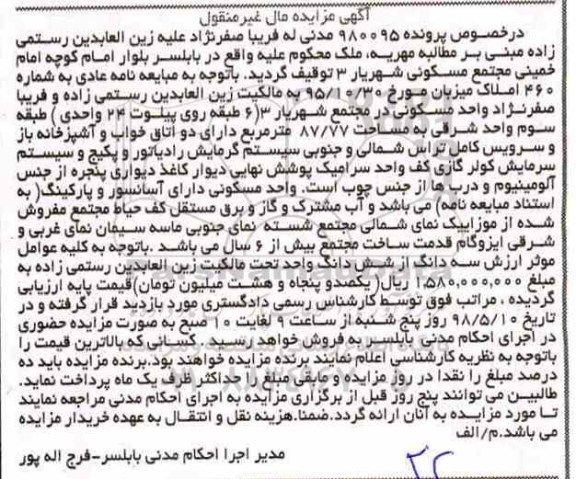 آگهی مزایده مال غیرمنقول
درخصوص پرونده ۹۸۰۰۹۵ مدنی له فریبا صفرنژاد علیه زین العابدین رستمی
زاده مبنی بر مطالبه مهریه، ملک محکوم علیه واقع در بابلسر بلوار امام کوچه امام
خمینی مجتمع مسکونی شهریار ۳ توقیف گردید. باتوجه به مبایعه نامه عادی به شماره
۴۶۰ املاک میزبان مورخ ۹۵/۱۰/۳۰ به مالکیت زین العابدین رستمی زاده و فریبا
صفرنژاد واحد مسکونی در مجتمع شهریار ۳(۶ طبقه روی پیلوت ۲۴ واحدی ) طبقه
سوم واحد شرقی به مساحت ۸۷/۷۷ مترمربع دارای دو اتاق خواب و آشپزخانه باز
و سرویس کامل تراس شمالی و جنوبی سیستم گرمایش رادیاتور و پکیج و سیستم
سرمایش کولر گازی کف واحد سرامیک پوشش نهایی دیوار کاغذ دیواری پنجره از جنس
آلومینیوم و درب ها از جنس چوب است. واحد مسکونی دارای آسانسور و پارکینگ( به
استناد مبایعه نامه) می باشد و آب مشترک و گاز و برق مستقل کف حیاط مجتمع مفروش
شده از موزاییک نمای شمالی مجتمع شسته نمای جنوبی ماسه سیمان نمای غربی و
شرقی ایزوگام قدمت ساخت مجتمع بیش از ۶ سال می باشد .باتوجه به کلیه عوامل
موثر ارزش سه دانگ از شش دانگ واحد تحت مالکیت زین العابدین رستمی زاده به
مبلغ ۱,۵۸۰,۰۰۰,۰۰۰ ریال( یکصدو پنجاه و هشت میلیون تومان)قیمت پایه ارزیابی
گردیده ، مراتب فوق توسط کارشناس رسمی دادگستری مورد بازدید قرار گرفته و در
تاریخ ۹۸/۵/۱۰ روز پنج شنبه از ساعت ۹ لغایت ۱۰ صبح به صورت مزایده حضوری
در اجرای احکام مدنی بابلسر به فروش خواهد رسید . کسانی که بالاترین قیمت را
باتوجه به نظریه کارشناسی اعلام نمایند برنده مزایده خواهند بود.برنده مزایده باید ده
درصد مبلغ را نقدا در روز مزایده و مابقی مبلغ را حداکثر ظرف یک ماه پرداخت نماید.
طالبین می توانند پنج روز قبل از برگزاری مزایده به اجرای احکام مدنی مراجعه نمایند
تا مورد مزایده به آنان ارائه گردد.ضمنا.هزینه نقل و انتقال به عهده خریدار مزایده
می باشد.م/الف
مدیر اجرا احکام مدنی بابلسر-فرج اله پور
۲۲